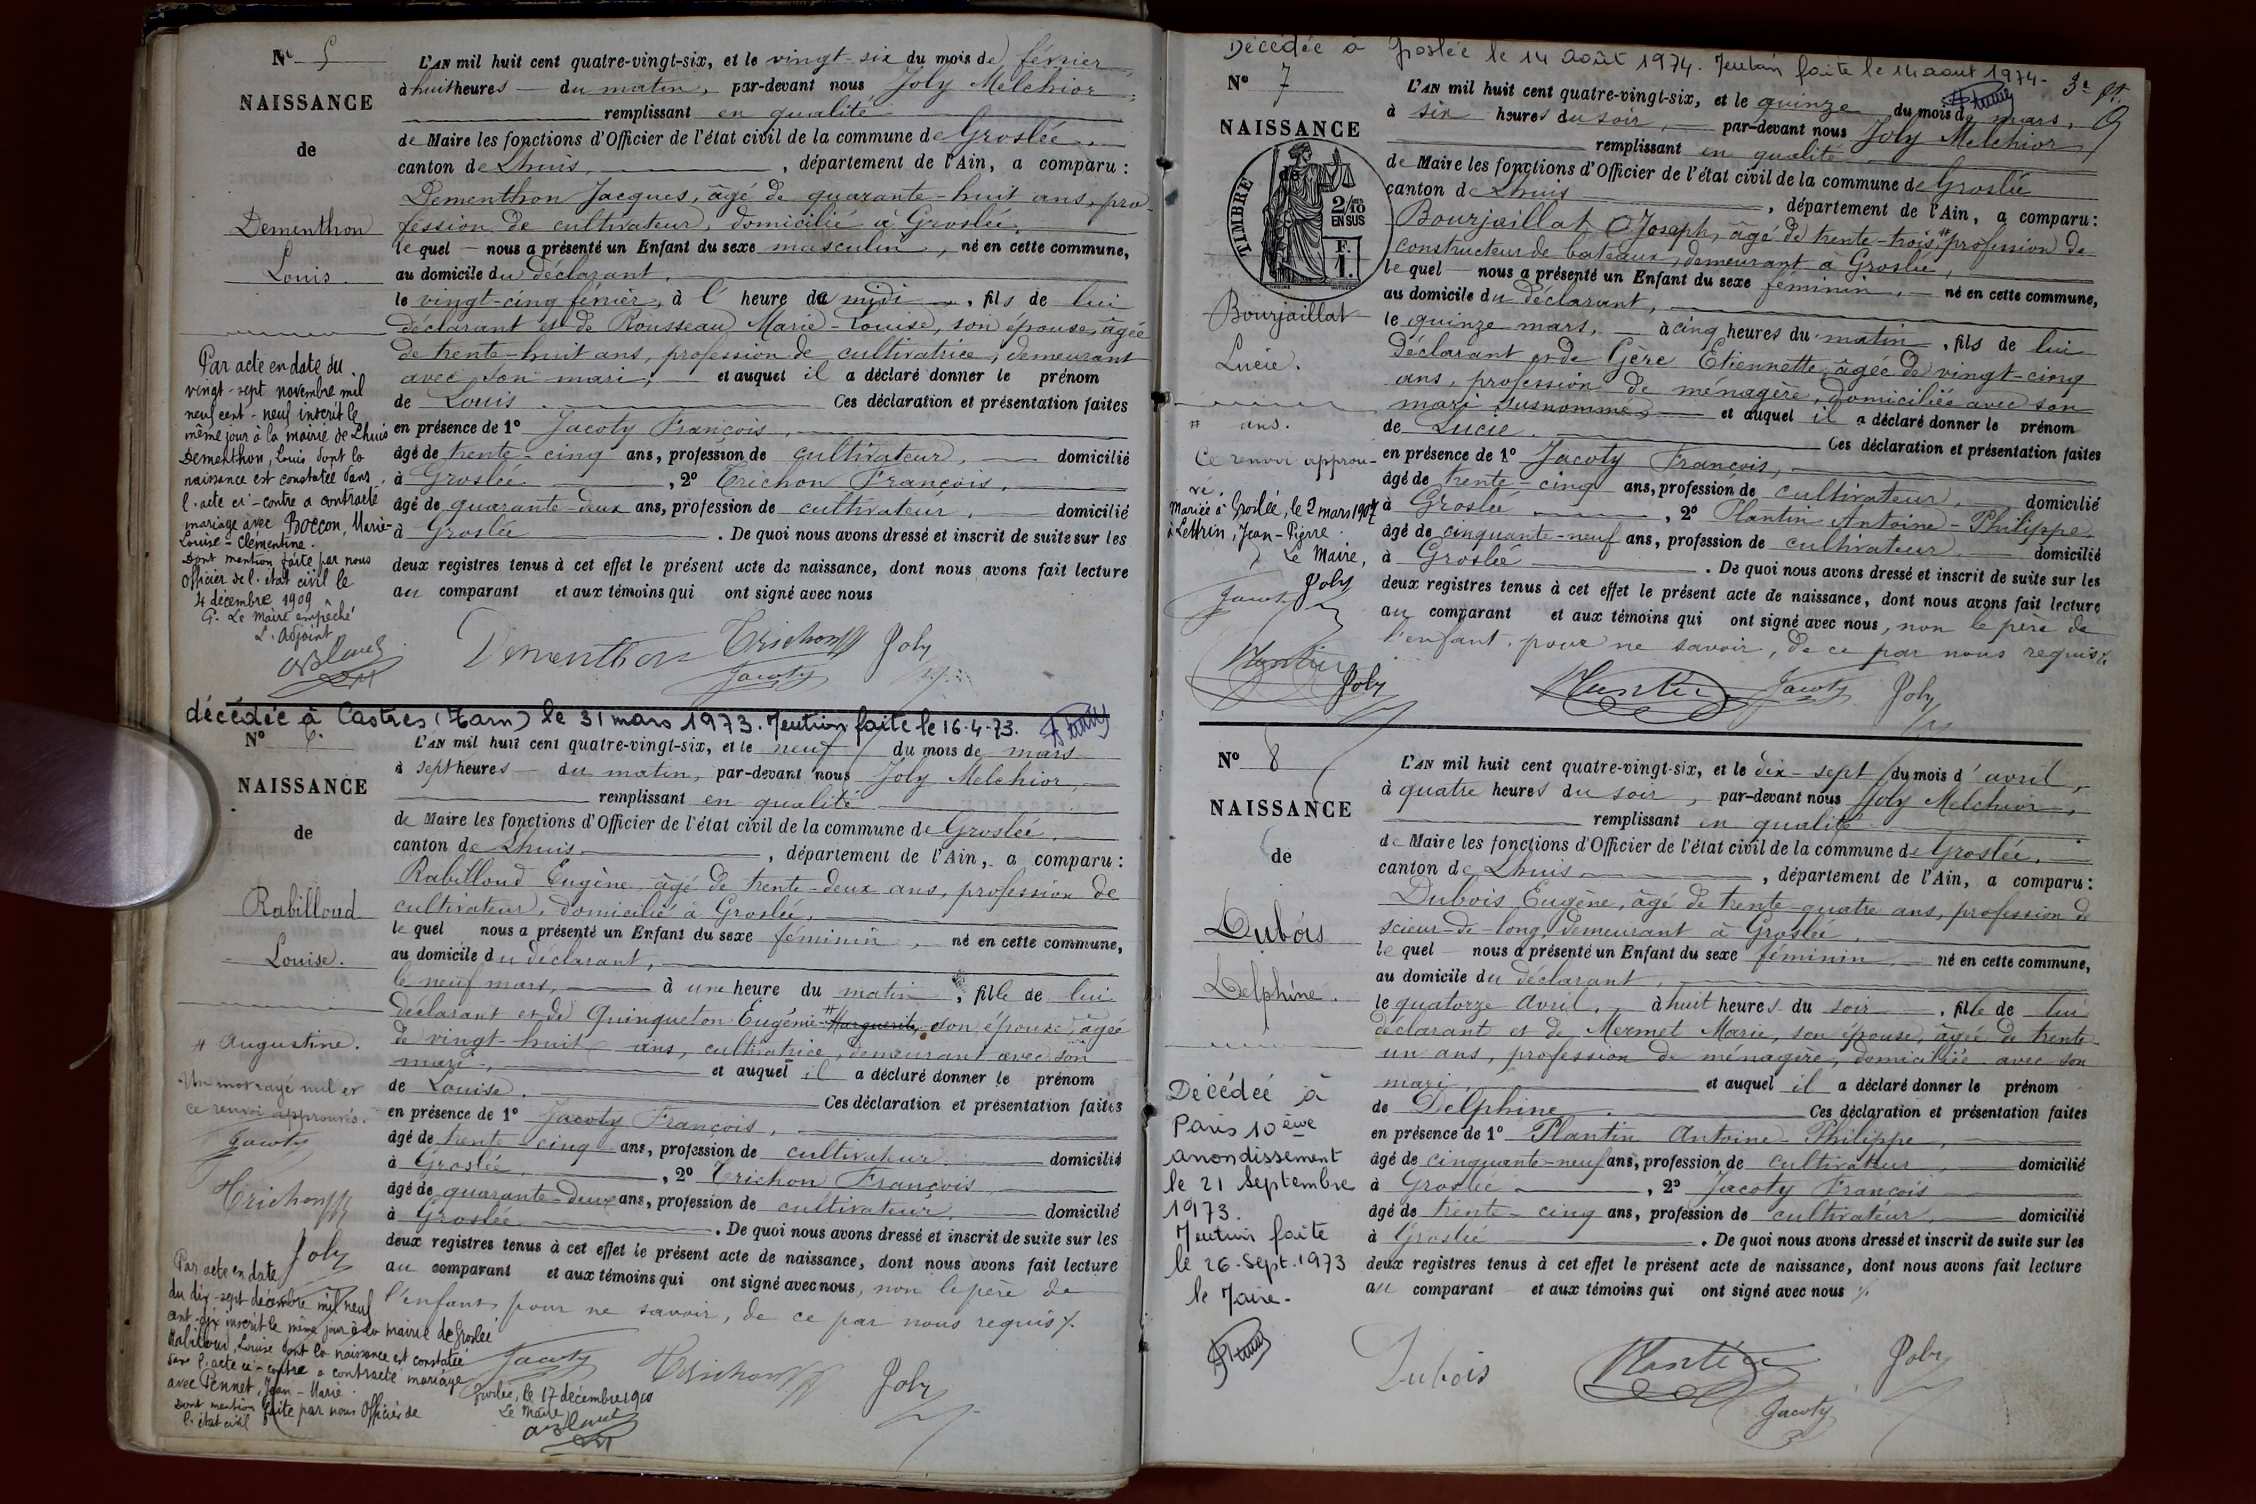 N° 5
NAISSANCE
de
Dementhon
Louis.
L'AN mil huit cent quatre-vingt-six, et le vingt-six du mois de février,
à huit heures du matin, par-devant nous Joly Melchior,
remplissant en qualité
de Maire les fonctions d'Officier de l'état civil de la commune de Groslée,
canton de Lhuis, département de l'Ain, a comparu :
Dementhon Jacques, âgé de quarante-huit ans, pro-
fession de cultivateur, domicilié à Groslée,
lequel nous a présenté un Enfant du sexe masculin, né en cette commune,
au domicile du déclarant,
le vingt-cinq février, à l' heure de midi, fils de lui
déclarant et de Rousseau Marie-Louise, son épouse, âgée
de trente-huit ans, profession de cultivatrice, demeurant
avec son mari, et auquel il a déclaré donner le prénom
de Louis. Ces déclaration et présentation faites
en présence de 1° Jacoty François,
âgé de trente-cinq ans, profession de cultivateur, domicilié
à Groslée, 2° Trichon François,
âgé de quarante-deux ans, profession de cultivateur, domicilié
à Groslée. De quoi nous avons dressé et inscrit de suite sur les
deux registres tenus à cet effet le présent acte de naissance, dont nous avons fait lecture
au comparant et aux témoins qui ont signé avec nous
Dementhon Trichon Joly
Jacoty
Par acte en date du
vingt-sept novembre mil
neuf cent-neuf inscrit le
même jour à la mairie de Lhuis
Dementhon, Louis dont la
naissance est constatée dans
l'acte ci-contre a contracté
mariage avec Boccon, Marie-
Louise-Clémentine.
Dont mention faite par nous
Officier de l'état civil le
4 décembre 1909
P. Le Maire empêché
L'Adjoint
décédée à Castres (Tarn) le 31 mars 1973. Mention faite le 16.4.73.
N° 6.
NAISSANCE
de
Rabilloud
Louise.
L'AN mil huit cent quatre-vingt-six, et le neuf du mois de mars
à sept heures du matin, par-devant nous Joly Melchior,
remplissant en qualité
de Maire les fonctions d'Officier de l'état civil de la commune de Groslée,
canton de Lhuis, département de l'Ain, a comparu :
Rabilloud Eugène, âgé de trente-deux ans, profession de
cultivateur, domicilié à Groslée,
lequel nous a présenté un Enfant du sexe féminin, né en cette commune,
au domicile du déclarant,
le neuf mars, à une heure du matin, fille de lui
déclarant et de Quinqueton Eugénie-# Marguerite, son épouse, âgée
de vingt-huit ans, cultivatrice, demeurant avec son
mari, et auquel il a déclaré donner le prénom
de Louise. Ces déclaration et présentation faites
en présence de 1° Jacoty François,
âgé de trente cinq ans, profession de cultivateur domicilié
à Groslée, 2° Trichon François
âgé de quarante-deux ans, profession de cultivateur, domicilié
à Groslée. De quoi nous avons dressé et inscrit de suite sur les
deux registres tenus à cet effet le présent acte de naissance, dont nous avons fait lecture
au comparant et aux témoins qui ont signé avec nous, non le père de
l'enfant, pour ne savoir, de ce par nous requis.
Jacoty Trichon Joly
# Augustine.
Un mot rayé nul et
ce renvoi approuvés.
Jacoty
Trichon
Joly
Par acte en date
du dix-sept décembre mil neuf
cent-dix inscrit le même jour à la mairie de Groslée
Rabilloud, Louise dont la naissance est constatée
dans l'acte ci-contre a contracté mariage
avec Pennet, Jean-Marie.
Dont mention faite par nous Officier de
l'état civil
Groslée, le 17 décembre 1910
Le Maire
Décédée à Groslée le 14 août 1974. Mention faite le 14 aout 1974.
N° 7
NAISSANCE
TIMBRE
2/10
EN SUS
F.
1.
Bourjaillat
Lucie.
L'AN mil huit cent quatre-vingt-six, et le quinze du mois de mars,
à six heures du soir, par-devant nous Joly Melchior
remplissant en qualité
de Maire les fonctions d'Officier de l'état civil de la commune de Groslée
canton de Lhuis, département de l'Ain, a comparu :
Bourjaillat Joseph, âgé de trente-trois, # profession de
constructeur de bateaux, demeurant à Groslée,
lequel nous a présenté un Enfant du sexe féminin, né en cette commune,
au domicile du déclarant,
le quinze mars, à cinq heures du matin, fils de lui
déclarant et de Gère Etiennette, âgée de vingt-cinq
ans, profession de ménagère, domiciliée avec son
mari susnommé, et auquel il a déclaré donner le prénom
de Lucie. Ces déclaration et présentation faites
en présence de 1° Jacoty François,
âgé de trente-cinq ans, profession de cultivateur, domicilié
à Groslée, 2° Plantin Antoine-Philippe,
âgé de cinquante-neuf ans, profession de cultivateur, domicilié
à Groslée. De quoi nous avons dressé et inscrit de suite sur les
deux registres tenus à cet effet le présent acte de naissance, dont nous avons fait lecture
au comparant et aux témoins qui ont signé avec nous, non le père de
l'enfant, pour ne savoir, de ce par nous requis.
Plantin Jacoty Joly
# ans.
Ce renvoi approu-
vé.
Mariée à Groslée, le 2 mars 1907
à Lettrin, Jean-Pierre
Le Maire,
Joly
Jacoty
Plantin
Joly
N° 8
NAISSANCE
de
Dubois
Delphine.
L'AN mil huit cent quatre-vingt-six, et le dix-sept du mois d'avril,
à quatre heures du soir, par-devant nous Joly Melchior,
remplissant en qualité
de Maire les fonctions d'Officier de l'état civil de la commune de Groslée,
canton de Lhuis, département de l'Ain, a comparu :
Dubois Eugène, âgé de trente-quatre ans, profession de
scieur-de-long, demeurant à Groslée,
lequel nous a présenté un Enfant du sexe féminin né en cette commune,
au domicile du déclarant,
le quatorze avril, à huit heures du soir, fille de lui
déclarant et de Mermet Marie, son épouse, âgée de trente-
un ans, profession de ménagère, domiciliée avec son
mari, et auquel il a déclaré donner le prénom
de Delphine. Ces déclaration et présentation faites
en présence de 1° Plantin Antoine-Philippe,
âgé de cinquante-neuf ans, profession de cultivateur, domicilié
à Groslée, 2° Jacoty François
âgé de trente-cinq ans, profession de cultivateur, domicilié
à Groslée. De quoi nous avons dressé et inscrit de suite sur les
deux registres tenus à cet effet le présent acte de naissance, dont nous avons fait lecture
au comparant et aux témoins qui ont signé avec nous
Dubois Plantin Joly
Jacoty
Décédée à
Paris 10ème
arrondissement
le 21 Septembre
1973.
Mention faite
le 26-Sept.1973
le Maire-